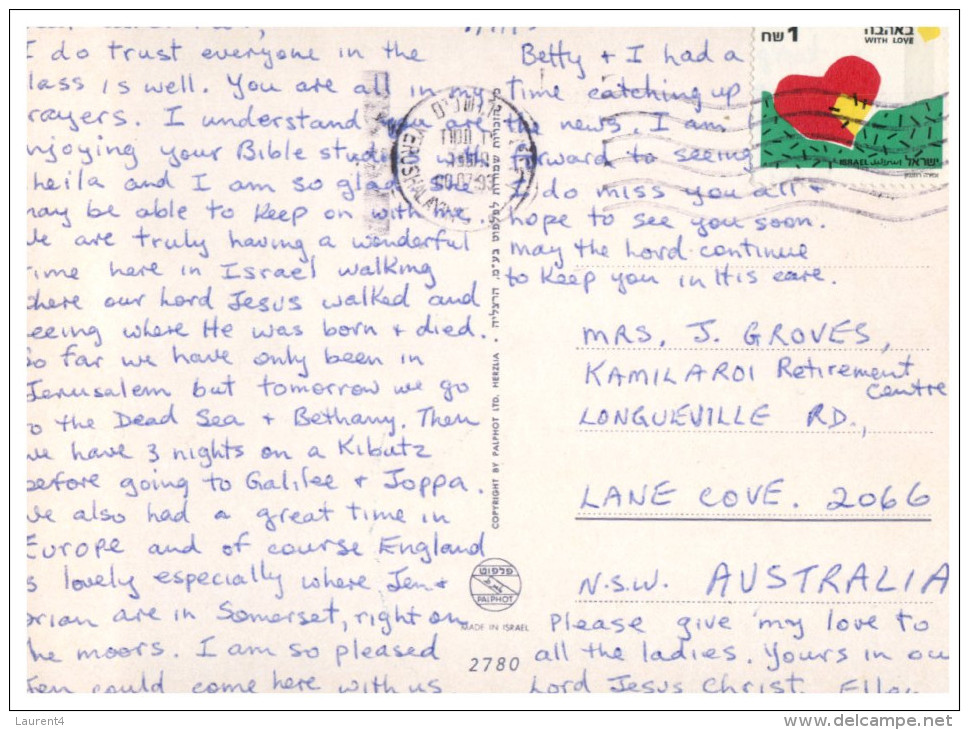 I do trust everyone in the
lass is well. You are all in my
rayers. I understand you are
njoying your Bible studies with
heila and I am so glad she
may be able to keep on with me.
We are truly having a wonderful
time here in Israel walking
where our Lord Jesus walked and
seeing where He was born + died.
So far we have only been in
Jerusalem but tomorrow we go
to the Dead Sea + Bethany. Then
we have 3 nights on a Kibutz
before going to Galilee + Joppa.
We also had a great time in
Europe and of course England
s lovely especially where Jen +
Brian are in Somerset, right on
the moors. I am so pleased
Jen could come here with us
Betty + I had a
time catching up
the news. I am
forward to seeing
I do miss you all +
hope to see you soon.
may the Lord continue
to keep you in His care.
MRS. J. GROVES,
KAMILAROI Retirement
Centre
LONGUEVILLE RD.,
LANE COVE. 2066
N.S.W. AUSTRALIA
Please give my love to
all the ladies. Yours in our
Lord Jesus Christ. Ellen
1 שח
באהבה
WITH LOVE
ISRAEL ישראל
ירושלים
YERUSHALAYIM
COPYRIGHT BY PALPHOT LTD. HERZLIA • כל הזכויות שמורות לפלפוט בע"מ, הרצליה
פלפוט
PALPHOT
MADE IN ISRAEL
2780
Laurent4
delcampe.net